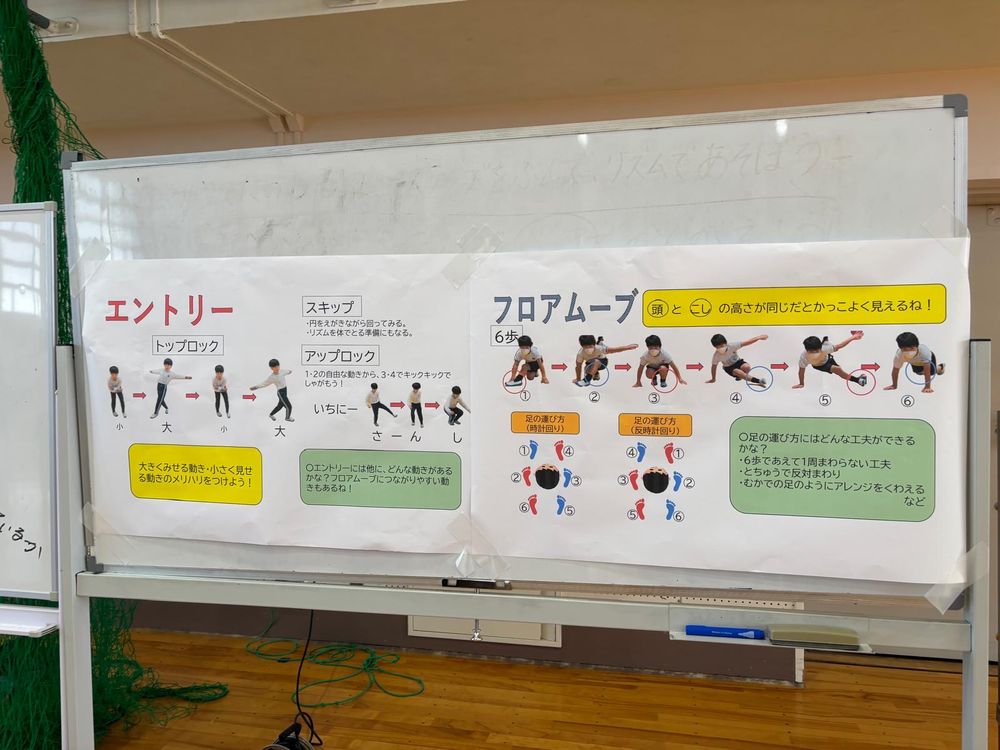 リズムであそぼう
エントリー
トップロック
小
大
小
大
大きくみせる動き・小さく見せ
る動きのメリハリをつけよう!
スキップ
・円をえがきながら回ってみる。
・リズムを体でとる準備にもなる。
アップロック
1・2の自由な動きから、3・4でキックキックで
しゃがもう!
いちにー
さーん
し
〇エントリーには他に、どんな動きがある
かな?フロアムーブにつながりやすい動
きもあるね!
フロアムーブ
頭 と こし の高さが同じだとかっこよく見えるね!
6歩
① ② ③ ④ ⑤ ⑥
足の運び方
(時計回り)
① ④
② ③
⑥ ⑤
足の運び方
(反時計回り)
④ ①
③ ②
⑤ ⑥
〇足の運び方にはどんな工夫ができる
かな?
・6歩であえて1周まわらない工夫
・とちゅうで反対まわり
・むかでの足のようにアレンジをくわえる
など